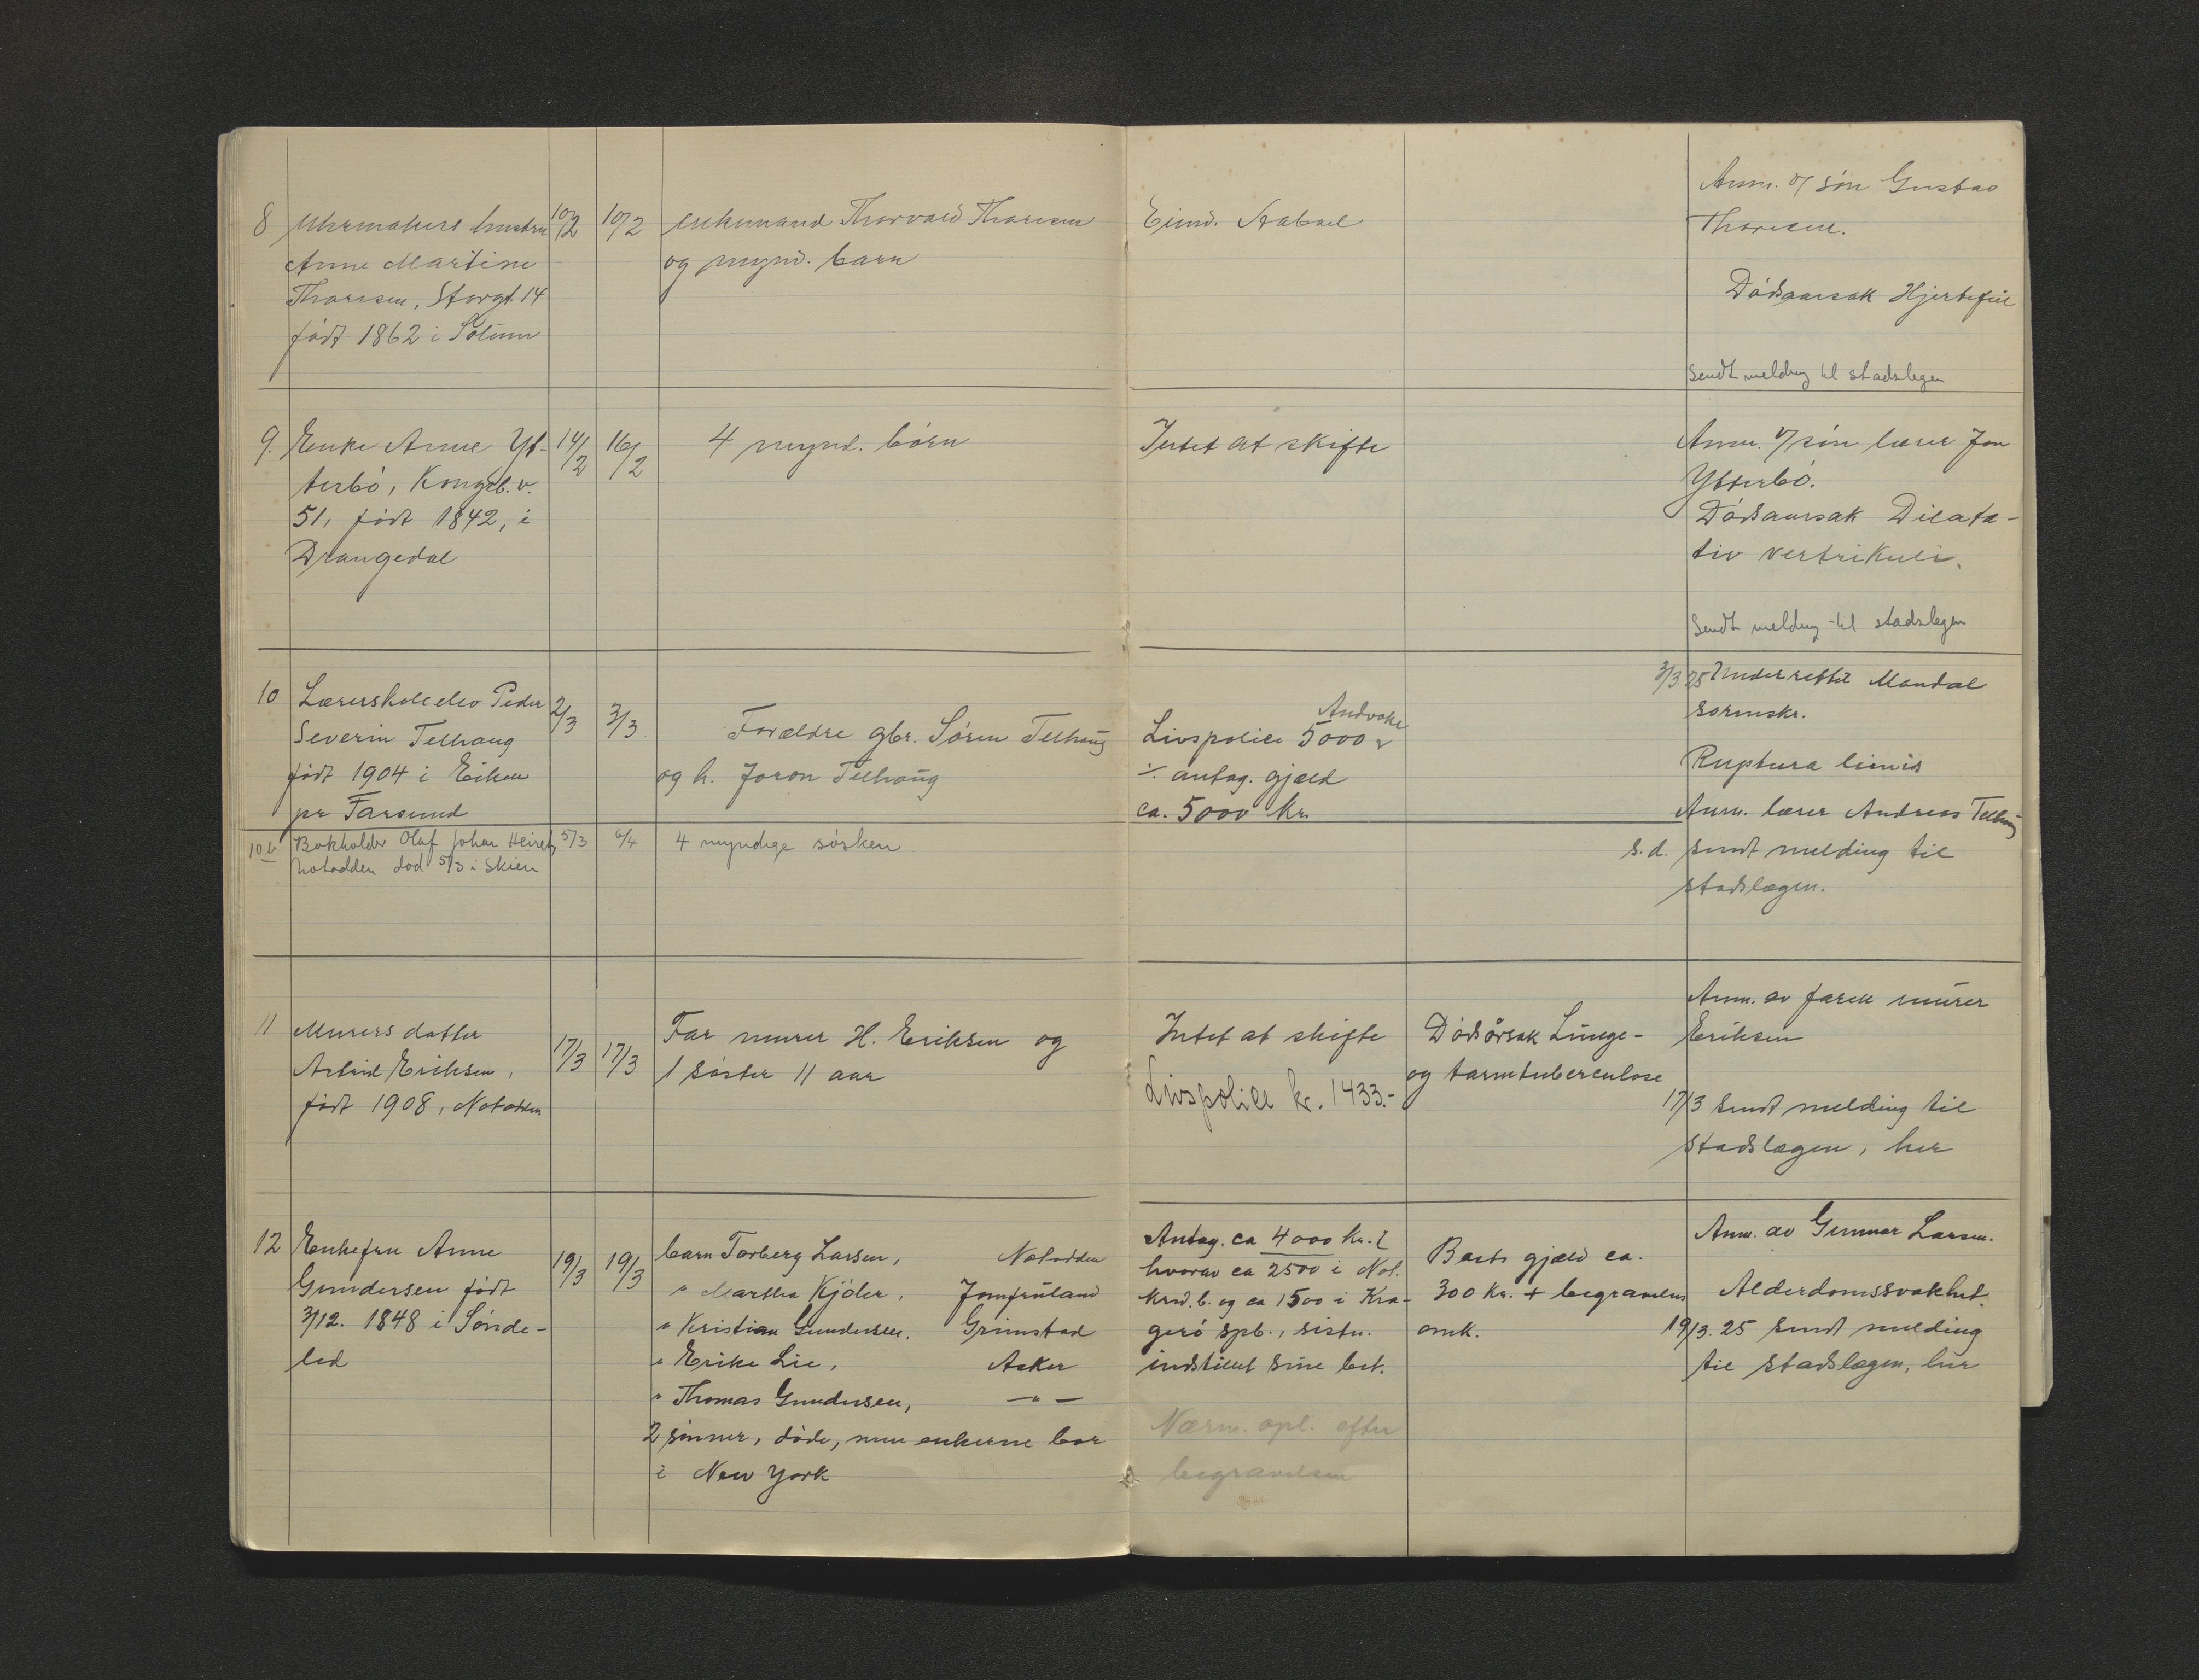 8 Uhrmakers hustru 10/2 10/2 enkemand Thorvald Thoresen
Anne Martine og mynd. barn
Thoresen, Storgt. 14
født 1862 i Solum
Eiend.
Anm. v/ søn Gustav
Thoresen.
Dødsaarsak Hjertefeil
Sendt melding til stadslegen
9. Enke Anne Yt- 14/2 16/2 4 mynd. børn
terbö, Kongsb. v.
51, født 1842, i
Drangedal
Intet at skifte
Anm. v/ søn lærer Jon
Ytterbö.
Dødsaarsak Dilata-
tio ventrikuli.
Sendt melding til stadslegen
10 Lærerskoleelev Peder 2/3 3/3 Forældre gbr. Sören Tellhaug
Severin Tellhaug og h. Joron Tellhaug
født 1904 i Eiken
pr Farsund
Andvake
Livspolice 5000
÷ antag. gjæld
ca. 5000 kr.
3/3 25 Underrettet Mandal
sorenskr.
Ruptura lienis
Anm. lærer Andreas Tellhaug
s.d. sendt melding til
stadslægen.
10 b Bokholder Olaf Johan 5/3 6/4 4 myndige søsken
Notodden död 5/3 i Skien
11 Murers datter 17/3 17/3 Far murer H. Eriksen og
Astrid Eriksen, 1 søster 11 aar
født 1908, Notodden
Intet at skifte
Livspolice kr. 1433.-
Dødsårsak Lunge-
og tarmtuberculose
Anm. av faren murer
Eriksen
17/3 sendt melding til
stadslægen, her
12 Enkefru Anne 19/3 19/3
Gundersen født
3/12. 1848 i Sønde-
led
barn Torberg Larsen, Notodden
" Martha Kjöler, Jomfruland
" Kristian Gundersen, Grimstad
" Erike Lie, Asker
" Thomas Gundersen, —"—
2 sønner, døde, men enkerne bor
i New York
Antag. ca 4000 kr.
hvorav ca 2500 i Not.
kred.b. og ca 1500 i Kra-
gerö spb., sistn.
indstillet sine bet.
Nærm. opl. efter
begravelsen
Boets gjæld ca.
300 kr. + begravelses
omk.
Anm. av Gunnar Larsen.
Alderdomssvakhet.
19/3. 25 sendt melding
til stadslægen, her